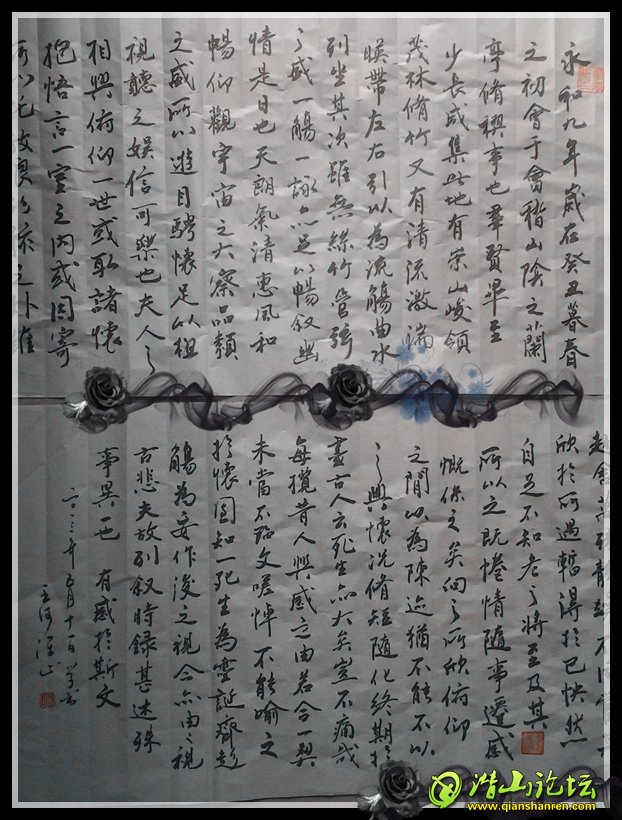 永和九年歲在癸丑暮春
之初會于會稽山陰之蘭
亭脩禊事也羣賢畢至
少長咸集此地有崇山峻領
茂林脩竹又有清流激湍
暎帶左右引以為流觴曲水
列坐其次雖無絲竹管弦
之盛一觴一詠亦足以暢叙幽
情是日也天朗氣清惠風和
暢仰觀宇宙之大察品類
之盛所以遊目騁懷足以極
視聽之娛信可樂也夫人之
相與俯仰一世或取諸懷
抱悟言一室之內或因寄
之外雖
欣於所遇暫得於己怏然
自足不知老之將至及其
所以之既惓情隨事遷感
慨係之矣向之所欣俯仰
之間以為陳迹猶不能不以
之興懷況脩短隨化終期於
盡古人云死生亦大矣豈不痛哉
每攬昔人興感之由若合一契
未嘗不臨文嗟悼不能喻之
於懷固知一死生為虛誕齊彭
觴為妄作後之視今亦由之視
古悲夫故列叙時録其述殊
事異也 有感於斯文
年五月十一日學書
潜山论坛
www.qianshanren.com